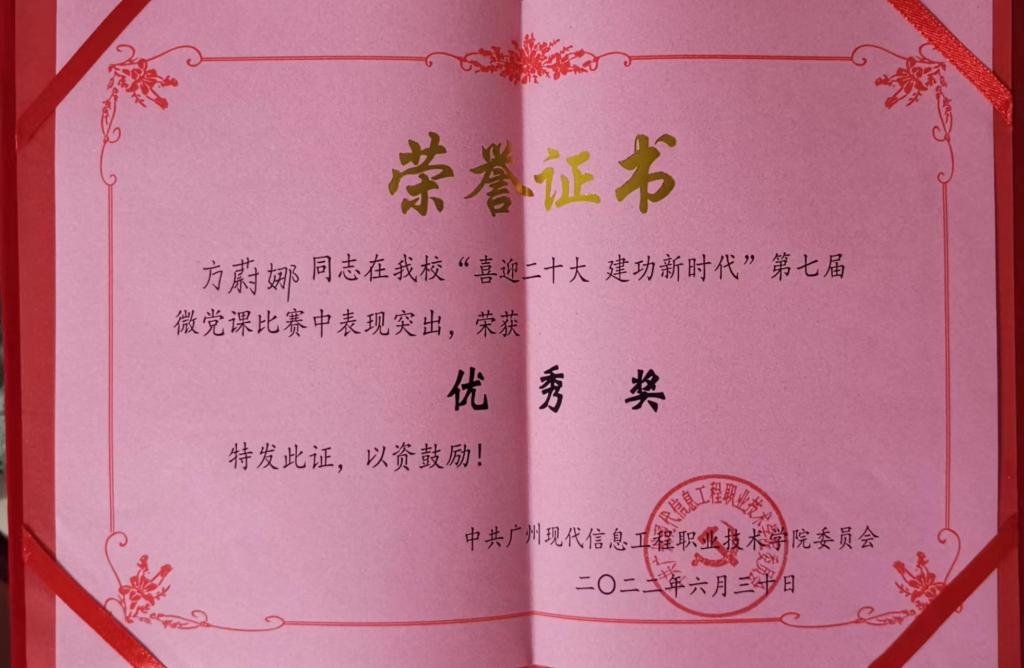 荣誉证书
方蔚娜 同志在我校“喜迎二十大 建功新时代”第七届
微党课比赛中表现突出，荣获
优秀奖
特发此证，以资鼓励！
中共广州现代信息工程职业技术学院委员会
二〇二二年六月三十日
中共广州现代信息工程职业技术学院委员会